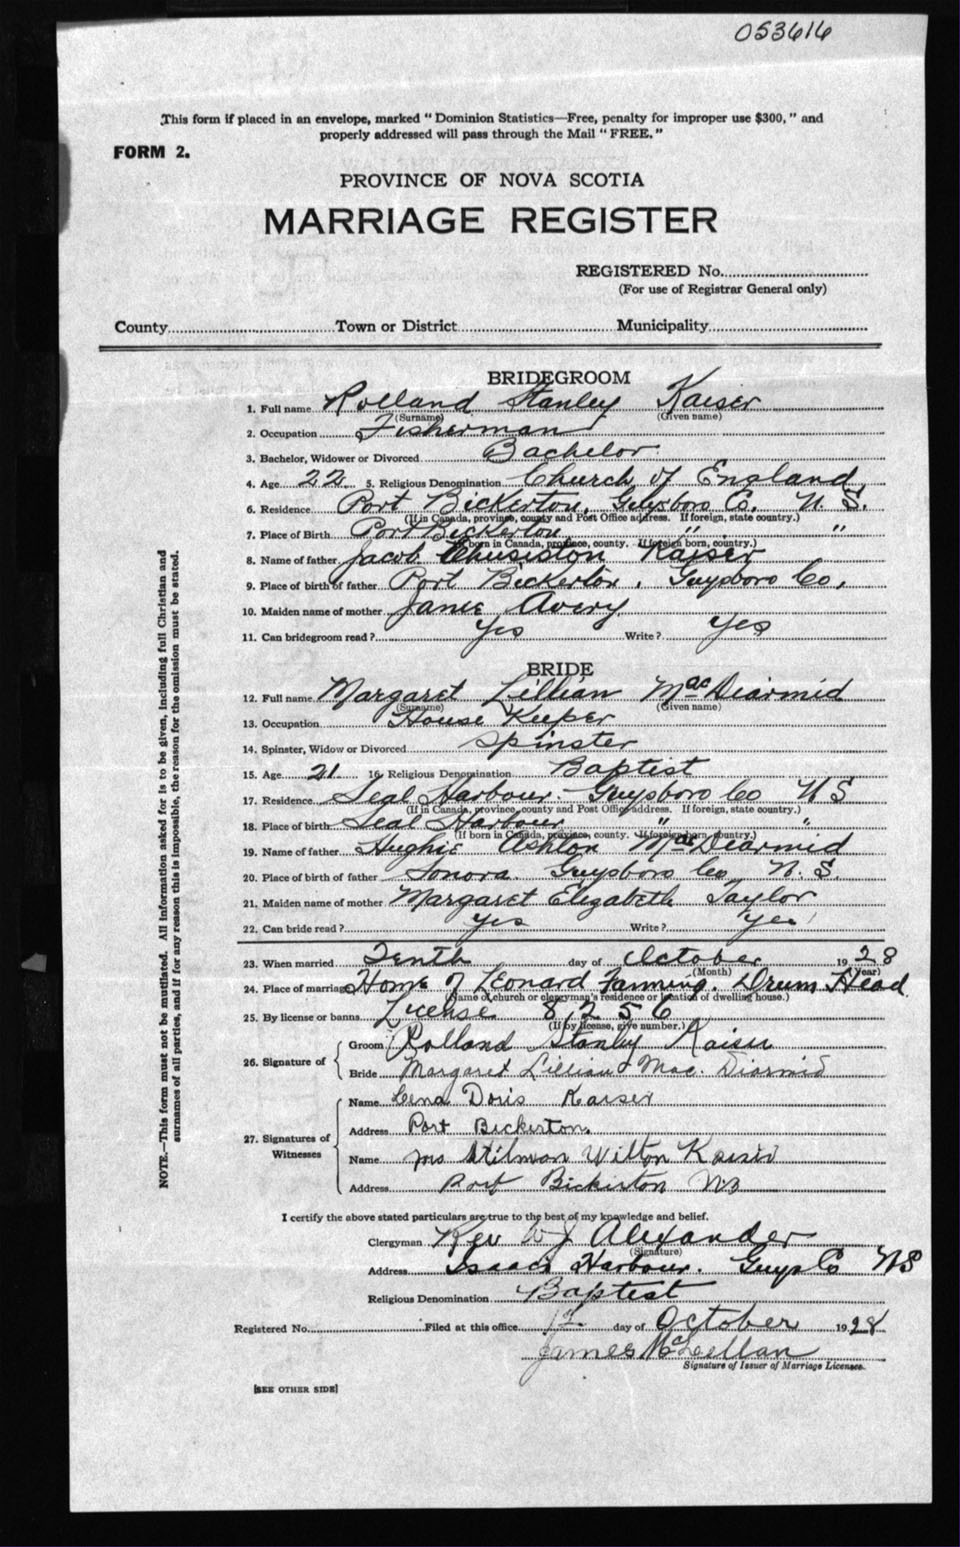 053616
This form if placed in an envelope, marked "Dominion Statistics—Free, penalty for improper use $300," and
properly addressed will pass through the Mail "FREE."
FORM 2.
PROVINCE OF NOVA SCOTIA
MARRIAGE REGISTER
REGISTERED No.
(For use of Registrar General only)
County Town or District Municipality
BRIDEGROOM
1. Full name Rolland Stanley Kaiser
(Surname) (Given name)
2. Occupation Fisherman
3. Bachelor, Widower or Divorced Bachelor
4. Age 22 5. Religious Denomination Church of England
6. Residence Port Bickerton, Guysboro Co. N. S.
(If in Canada, province, county and Post Office address. If foreign, state country.)
7. Place of Birth Port Bickerton " "
(If born in Canada, province, county. If foreign born, country.)
8. Name of father Jacob Kaiser
9. Place of birth of father Port Bickerton, Guysboro Co,
10. Maiden name of mother Janie Avery
11. Can bridegroom read? Yes Write? Yes
BRIDE
12. Full name Margaret Lillian MacDiarmid
(Surname) (Given name)
13. Occupation House Keeper
14. Spinster, Widow or Divorced Spinster
15. Age 21 16. Religious Denomination Baptist
17. Residence Seal Harbour - Guysboro Co N S
(If in Canada, province, county and Post Office address. If foreign, state country.)
18. Place of birth Seal Harbour " "
(If born in Canada, province, county. If foreign born, country.)
19. Name of father Hughie Ashton MacDiarmid
20. Place of birth of father Sonora Guysboro Co N. S.
21. Maiden name of mother Margaret Elizabeth Taylor
22. Can bride read? Yes Write? Yes
23. When married Tenth day of October 1928
(Month) (Year)
24. Place of marriage Home of Leonard Fanning. Drum Head
(Name of church or clergyman's residence or location of dwelling house.)
25. By license or banns License 8256
(If by license, give number.)
26. Signature of
Groom Rolland Stanley Kaiser
Bride Margaret Lillian Mac. Diarmid
27. Signatures of
Witnesses
Name Lena Doris Kaiser
Address Port Bickerton.
Name Mrs Stilman Wilton Kaiser
Address Port Bickerton NS
I certify the above stated particulars are true to the best of my knowledge and belief.
Clergyman Rev W J Alexander
(Signature)
Address Isaacs Harbour. Guys Co NS
Religious Denomination Baptist
Registered No. Filed at this office 12 day of October 1928
James McLellan
Signature of Issuer of Marriage Licenses.
[SEE OTHER SIDE]
NOTE.—This form must not be mutilated. All information asked for is to be given, including full Christian and
surnames of all parties, and if for any reason this is impossible, the reason for the omission must be stated.